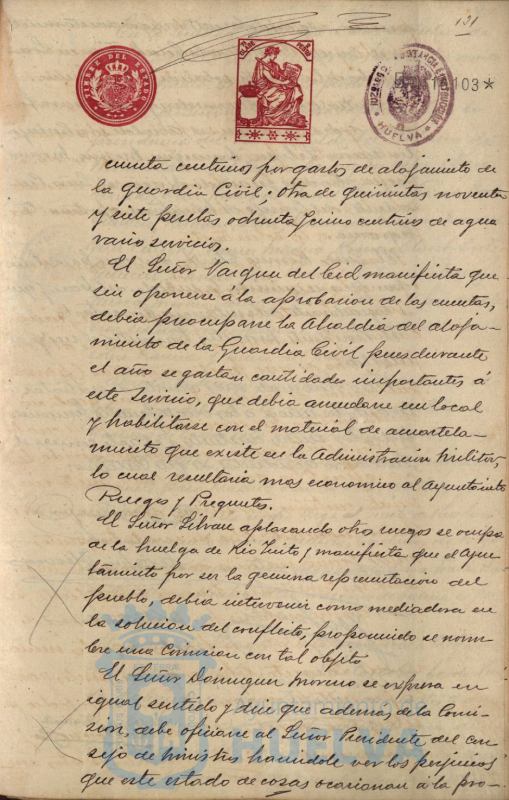 131
TIMBRE DEL ESTADO
103*
HUELVA
cuenta centimos por gastos de alojamiento de
la guardia Civil; otra de quinientas noventa
y siete pesetas ochenta y cinco centimos de agua
varios servicios.
El Señor Vazquez del Cid manifiesta que
sin oponerse á la aprobacion de las cuentas,
debia preocuparse la Alcaldia del aloja-
miento de la Guardia Civil pues durante
el año se gastan cantidades importantes á
este servicio, que debia arrendarse un local
y habilitarse con el material de acuartela-
miento que existe en la Administracion Militar,
lo cual resultaria mas economico al Ayuntamiento
Ruegos y Preguntas.
El Señor Silvan aplazando otros ruegos se ocupa
de la huelga de Rio Tinto y manifiesta que el Ayun-
tamiento por ser la genuina representacion del
pueblo, debia intervenir como mediadora en
la solucion del conflicto, proponiendo se nom-
bre una Comision con tal objeto
El Señor Dominguez Moreno se expresa en
igual sentido y dice que ademas, de la Comi-
sion, debe oficiarse al Señor Presidente del con-
sejo de ministros haciendole ver los perjuicios
que este estado de cosas ocasionan á la pro-
HUELVA